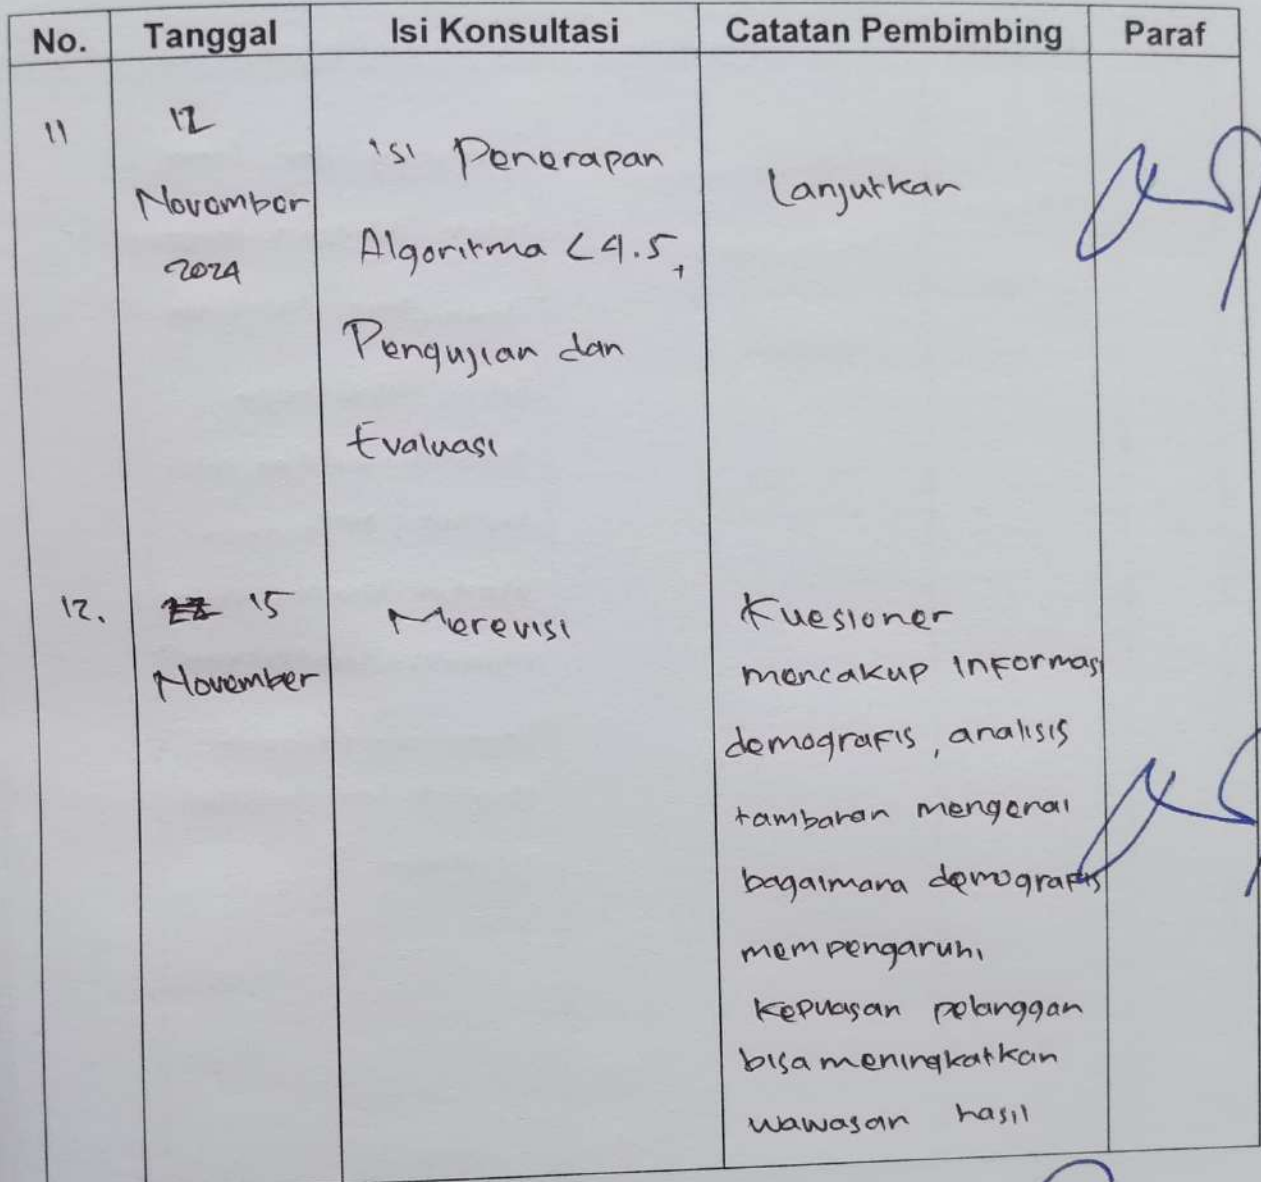 No. Tanggal Isi Konsultasi Catatan Pembimbing Paraf
11
12
November
2024
isi Penerapan
Algoritma C4.5,
Pengujian dan
Evaluasi
Lanjutkan
12.
15
November
Merevisi
Kuesioner
mencakup informasi
demografis, analisis
tambahan mengenai
bagaimana demografis
mempengaruhi
kepuasan pelanggan
bisa meningkatkan
wawasan hasil